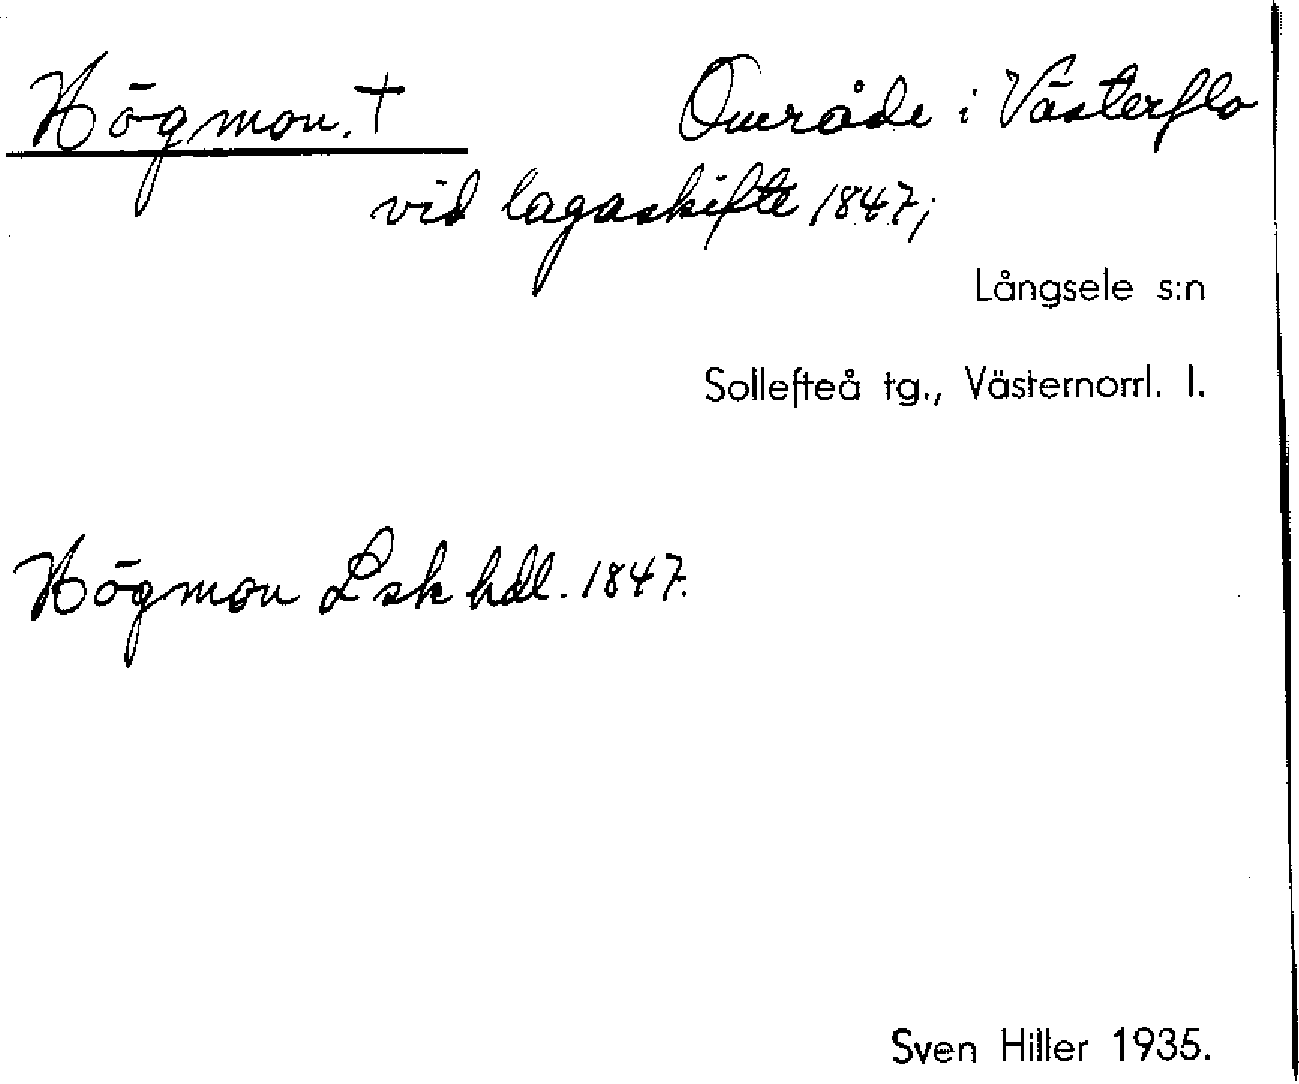 Högmon. † Område i Västerflo
vid lagaskifte 1847;
Långsele s:n
Sollefteå tg., Västernorrl. l.
Högmon Lsk hdl. 1847.
Sven Hiller 1935.